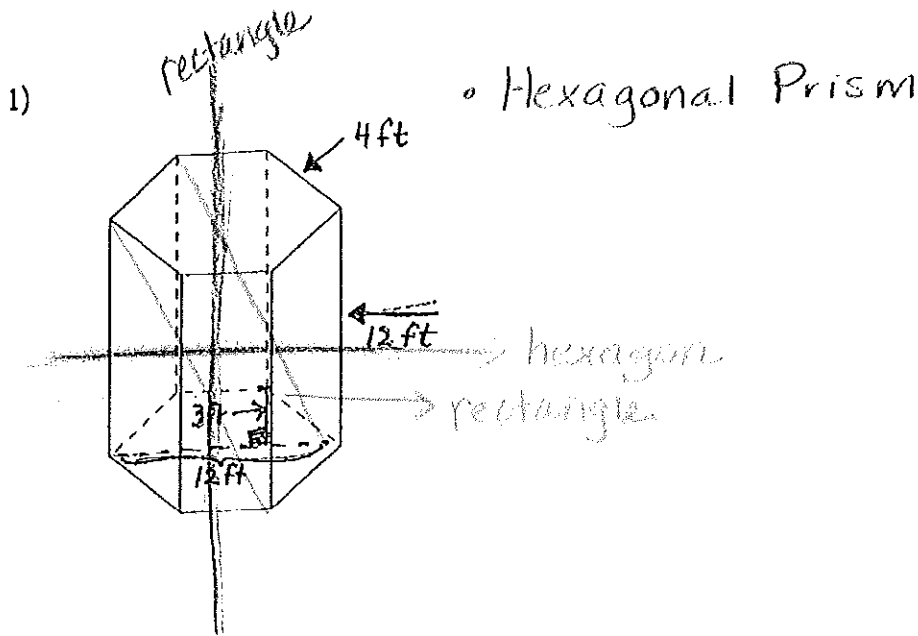 rectangle
1)
• Hexagonal Prism
4ft
12ft
hexagon
rectangle
12ft